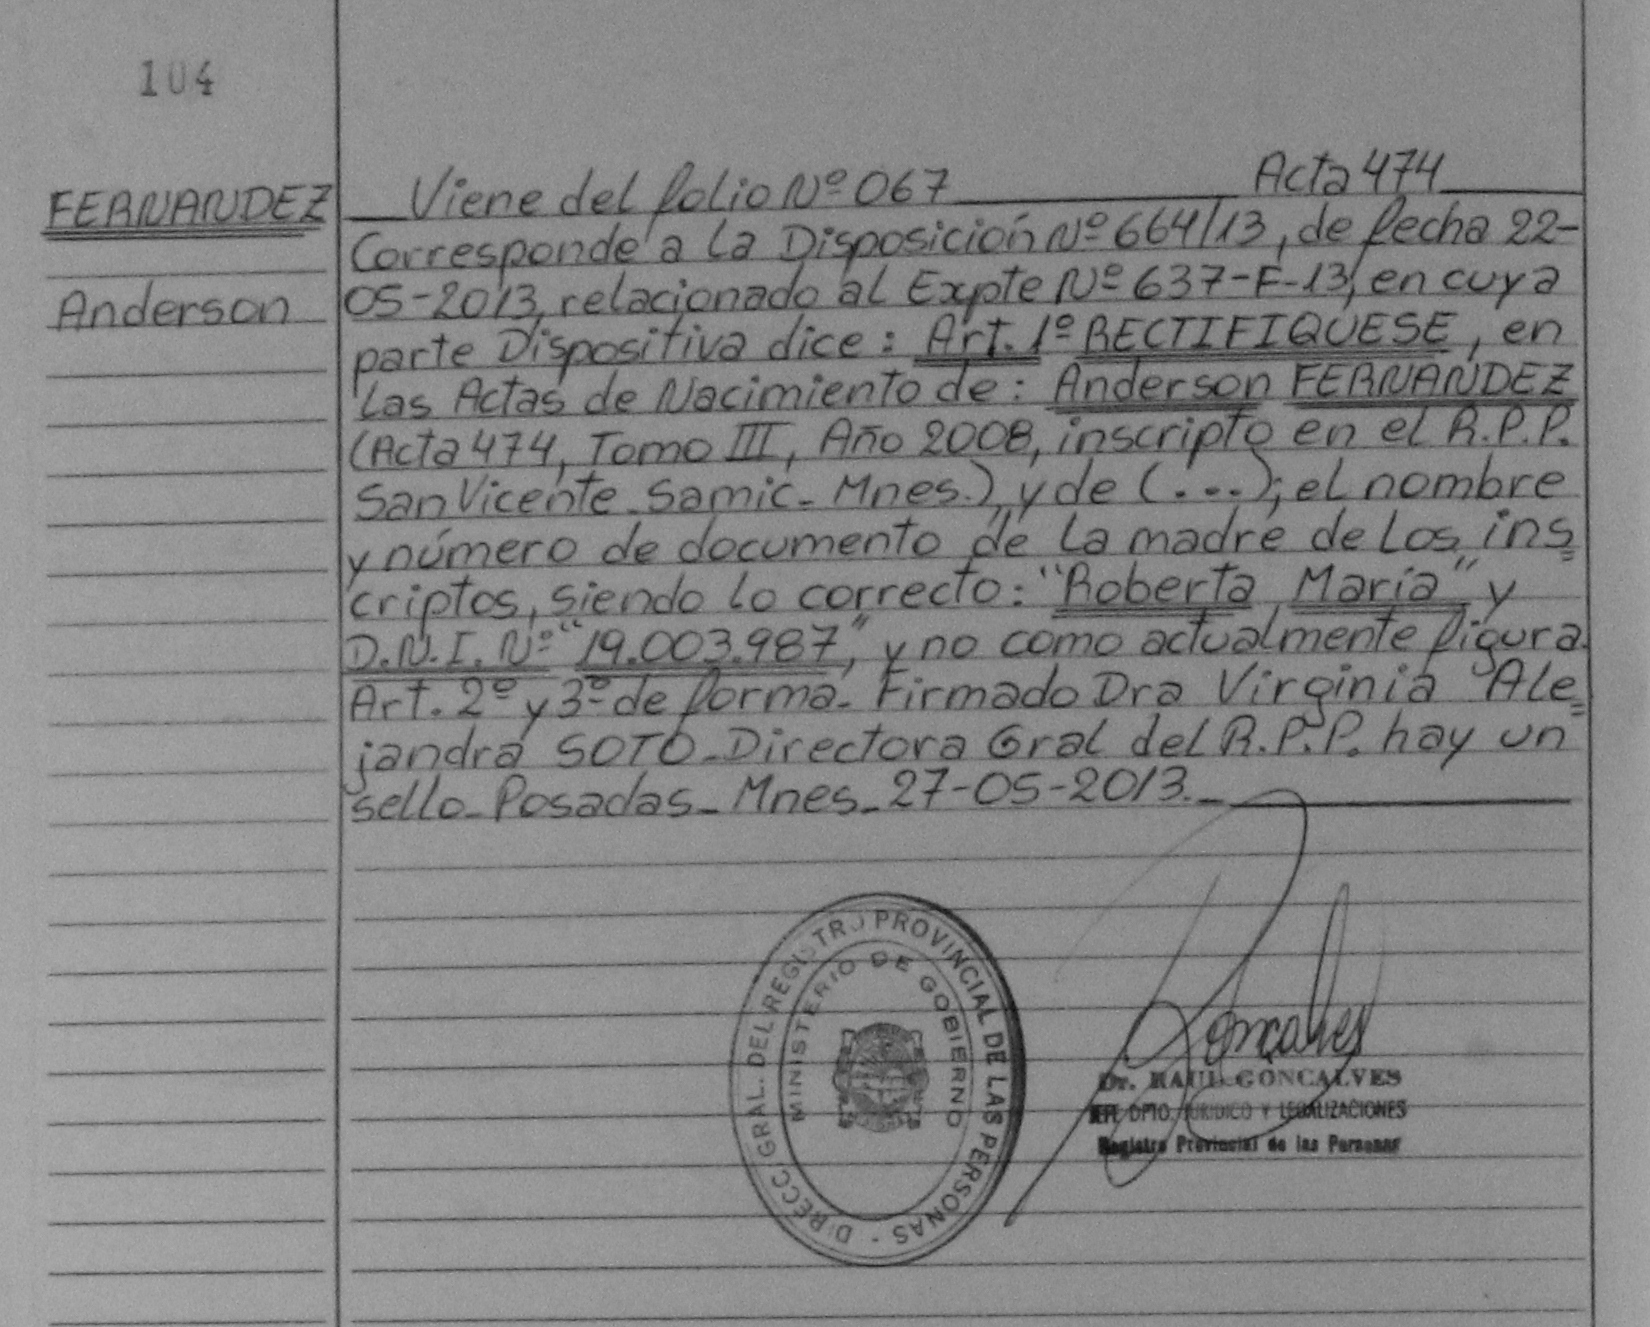 104
FERNANDEZ
Anderson
Viene del folio Nº 067 Acta 474
Corresponde a la Disposición Nº 664/13, de fecha 22-
05-2013, relacionado al Expte Nº 637-F-13, en cuya
parte Dispositiva dice: Art. 1º RECTIFIQUESE, en
las Actas de Nacimiento de: Anderson FERNANDEZ
(Acta 474, Tomo III, Año 2008, inscripto en el R.P.P.
San Vicente - Samic - Mnes.) y de (...); el nombre
y número de documento de la madre de los ins=
criptos, siendo lo correcto: "Roberta María" y
D.N.I. Nº "19.003.987", y no como actualmente figura.
Art. 2º y 3º de forma - Firmado Dra Virginia Ale=
jandra SOTO - Directora Gral del R.P.P. hay un
sello - Posadas - Mnes - 27-05-2013. -
DIRECC. GRAL. DEL REGISTRO PROVINCIAL DE LAS PERSONAS -
MINISTERIO DE GOBIERNO
Goncalves
Dr. RAUL GONCALVES
JEFE DPTO. JURIDICO Y LEGALIZACIONES
Registro Provincial de las Personas